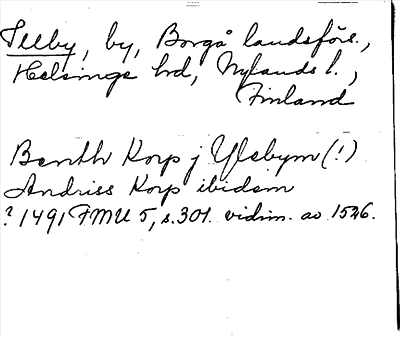 Illby, by, Borgå landsförs.,
Helsinge hrd, Nylands l.,
Finland
Benth Korp j Ylsbym (!)
Andriss Korp ibidem
? 1491 FMU 5, s. 301. vidim. av 1526.